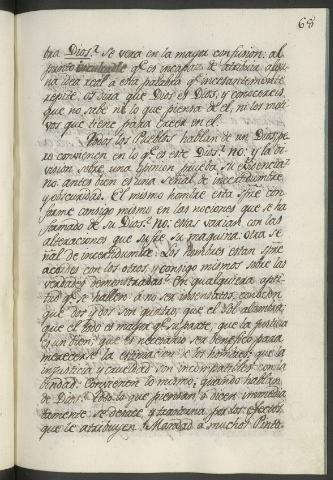 68
bra Dios? se verá en la mayor confusion: al
punto vereis qe. es incapaz de atribuir algu-
na idea real á esta palabra qe. incesantemente
repite; os dirá que Dios es Dios, y conocereis
que no sabe ni lo que piensa de el, ni los moti-
vos que tiene para creer en el.
Todos los Pueblos hablan de un Dios; pe-
ro convienen en lo qe. es este Dios? no: y la di-
vision sobre una opinion prueba su evidencia?
no: antes bien es una señal de incertidumbre,
y obscuridad. El mismo hombre está spre con-
forme consigo mismo en las nociones que se ha
formado de su Dios? no: estas varian con las
alteraciones que sufre su maquina: otra se-
ñal de incertidumbre. Los hombres estan spre
acordes con los otros, y consigo mismos sobre las
verdades demostradas. En qualquiera apti-
tud qe. se hallen á no ser insensatos, conocen
que dos y dos son quatro; que el Sol alumbra;
que el todo es mayor qe. su parte; que la justicia
es un bien; que es necesario ser benefico para
merecerse la estimacion de los hombres; que la
injusticia y crueldad son incompatibles con la
bondad. Convienen lo mismo, quando hablan
de Dios? Todo lo que piensan, ó dicen inmedia-
tamente se deshace, y trastorna por los efectos
que le atribuyen. Mandad á muchos Pinto-